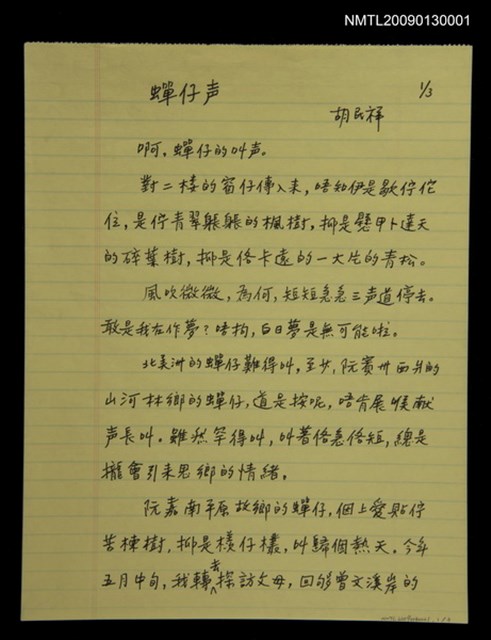 NMTL20090130001
蟬仔声
1/3
胡民祥
啊，蟬仔的叫声。
對二楼的窗仔傳入来，唔知伊是歇佇佗
位，是佇青翠的楓樹，抑是懸甲卜達天
的碎葉樹，抑是佫卡遠的一大片的青松。
風吹微微，為何，短短急急三声道停去。
敢是我在作夢？唔拘，白日夢是無可能啦。
北美洲的蟬仔難得叫，至少，阮賓州西爿的
山河林鄉的蟬仔，道是按呢，唔肯展喉献
声長叫。雖然罕得叫，叫著佫急佫短，總是
攏會引来思鄉的情緒。
阮嘉南平原故鄉的蟬仔，個上愛貼佇
苦楝樹，抑是檨仔欉，叫歸個熱天。今年
五月中旬，我轉去探訪父母，回到曾文溪岸的